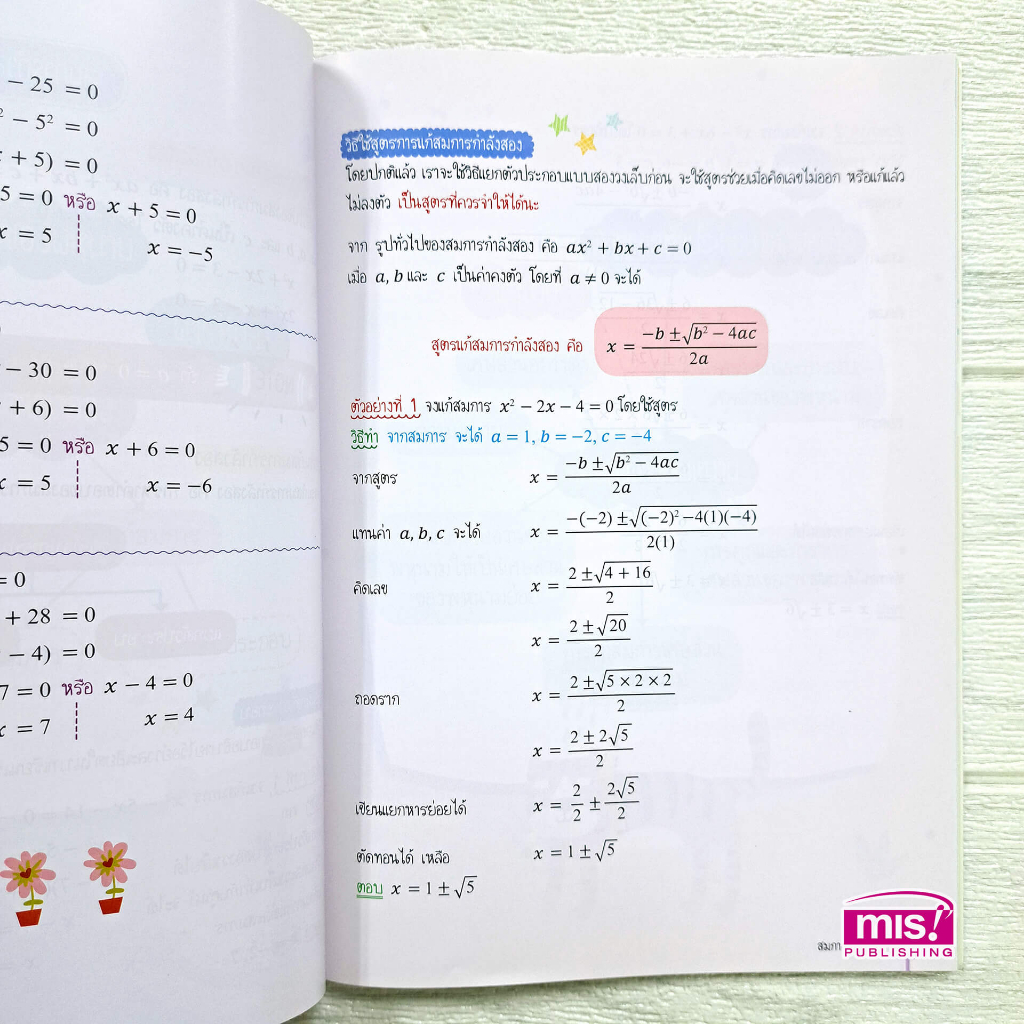 − 25 = 0
² − 5² = 0
+ 5) = 0
5 = 0 หรือ x + 5 = 0
x = 5 x = −5
− 30 = 0
+ 6) = 0
5 = 0 หรือ x + 6 = 0
x = 5 x = −6
= 0
+ 28 = 0
− 4) = 0
7 = 0 หรือ x − 4 = 0
x = 7 x = 4
วิธีใช้สูตรการแก้สมการกำลังสอง
โดยปกติแล้ว เราจะใช้วิธีแยกตัวประกอบแบบสองวงเล็บก่อน จะใช้สูตรช่วยเมื่อคิดเลขไม่ออก หรือแก้แล้ว
ไม่ลงตัว เป็นสูตรที่ควรจำให้ได้นะ
จาก รูปทั่วไปของสมการกำลังสอง คือ ax² + bx + c = 0
เมื่อ a, b และ c เป็นค่าคงตัว โดยที่ a ≠ 0 จะได้
สูตรแก้สมการกำลังสอง คือ x = (−b ± √(b² − 4ac))/2a
ตัวอย่างที่ 1 จงแก้สมการ x² − 2x − 4 = 0 โดยใช้สูตร
วิธีทำ จากสมการ จะได้ a = 1, b = −2, c = −4
จากสูตร x = (−b ± √(b² − 4ac))/2a
แทนค่า a, b, c จะได้ x = (−(−2) ± √((−2)² −4(1)(−4)))/2(1)
คิดเลข x = (2 ± √(4 + 16))/2
x = (2 ± √20)/2
ถอดราก x = (2 ± √(5 × 2 × 2))/2
x = (2 ± 2√5)/2
เขียนแยกหารย่อยได้ x = 2/2 ± 2√5/2
ตัดทอนได้ เหลือ x = 1 ± √5
ตอบ x = 1 ± √5
สมกา
mis!
PUBLISHING